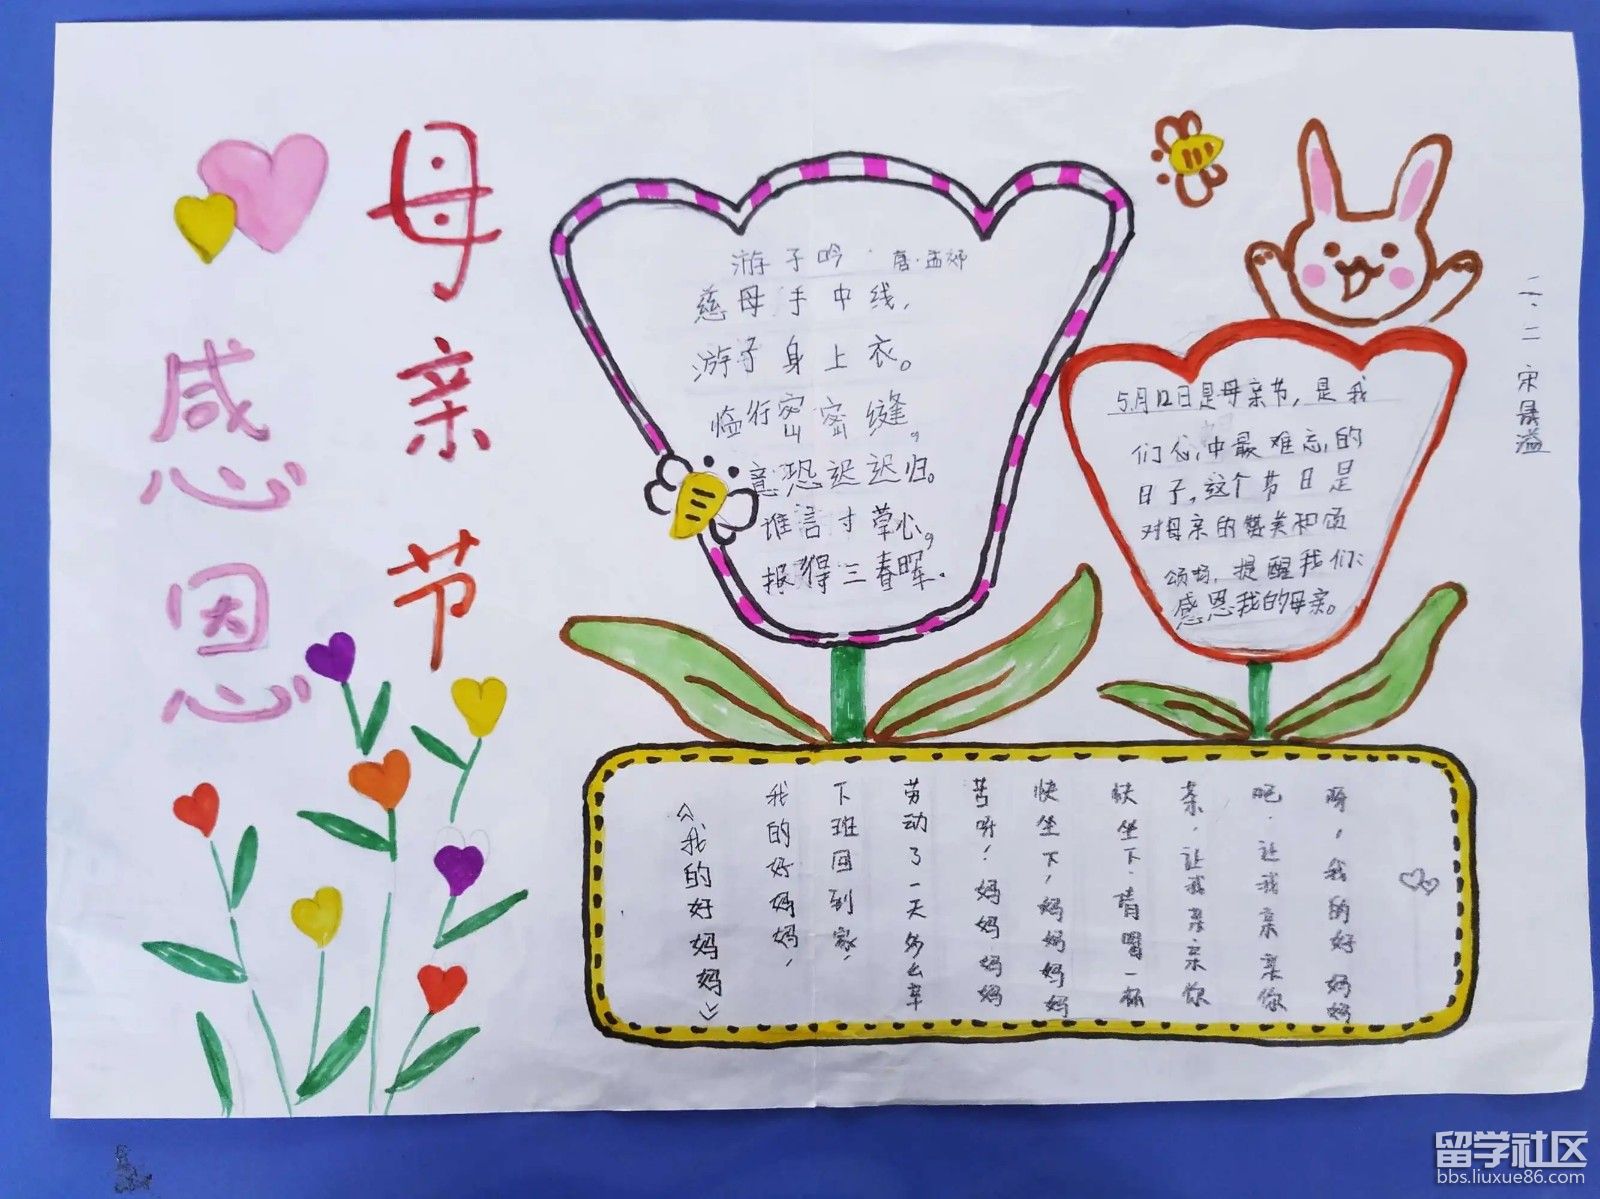 母亲节
感恩
游子吟 唐·孟郊
慈母手中线,
游子身上衣。
临行密密缝,
意恐迟迟归。
谁言寸草心,
报得三春晖.
5月12日是母亲节,是我
们心中最难忘的
日子,这个节日是
对母亲的赞美和颂
颂扬,提醒我们
感恩我的母亲。
二.二 宋
《我的好妈妈》
我的好妈妈,
下班回到家,
劳动了一天多么辛
苦呀!妈妈妈妈
快坐下!妈妈妈妈
快坐下.请喝一杯
茶.让我亲亲你
吧.让我亲亲你
呀!我的好妈妈
留学社区
bbs.liuxue86.com